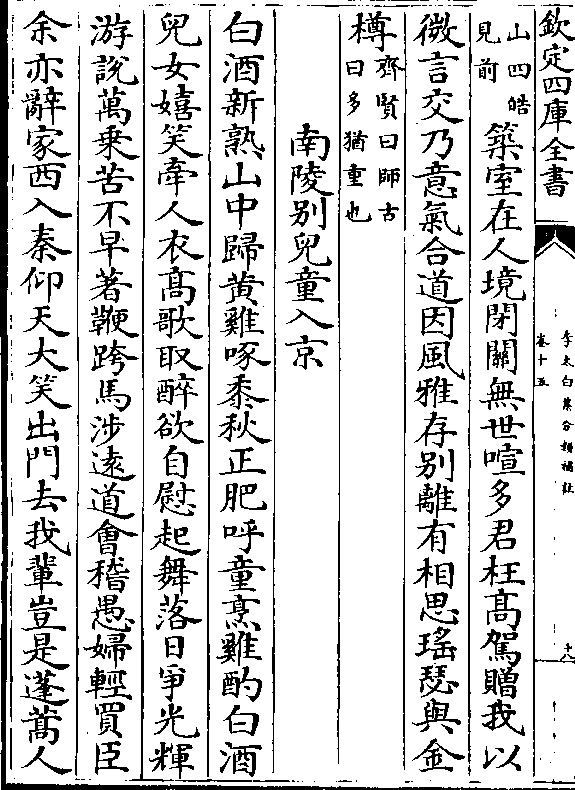 欽定四庫全書
李太白集分類補註
卷十五
十八
山四皓
見前
築室在人境閉關無世喧多君枉髙駕贈我以
微言交乃意氣合道因風雅存别離有相思瑤瑟與金
樽
齊賢曰師古
曰多猶重也
南陵别兒童入京
白酒新熟山中歸黄雞啄黍秋正肥呼童烹雞酌白酒
兒女嬉笑牽人衣髙歌取醉欲自慰起舞落日爭光輝
游說萬乗苦不早著鞭跨馬涉遠道會稽愚婦輕買臣
余亦辭家西入秦仰天大笑出門去我軰豈是蓬蒿人